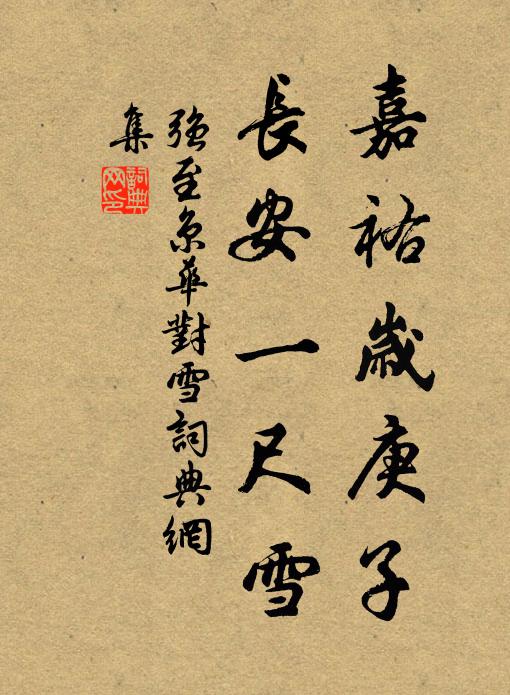 嘉祐歲庚子
長安一尺雪
強至京華對雪詞典網
集
詞典
网印